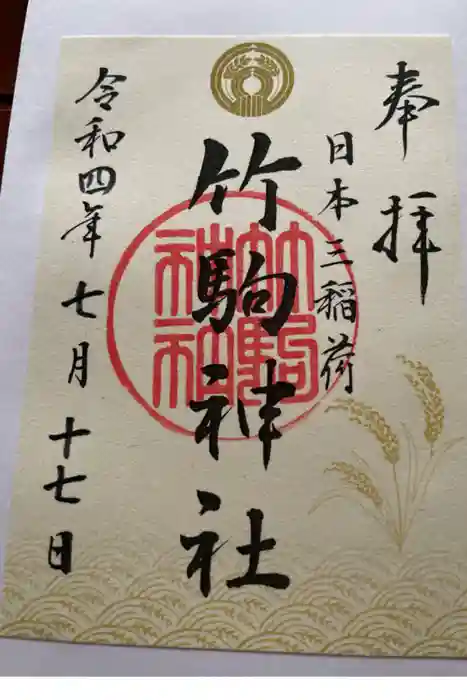 奉拝
日本三稲荷
竹駒神社
竹駒
神社
令和四年七月十七日